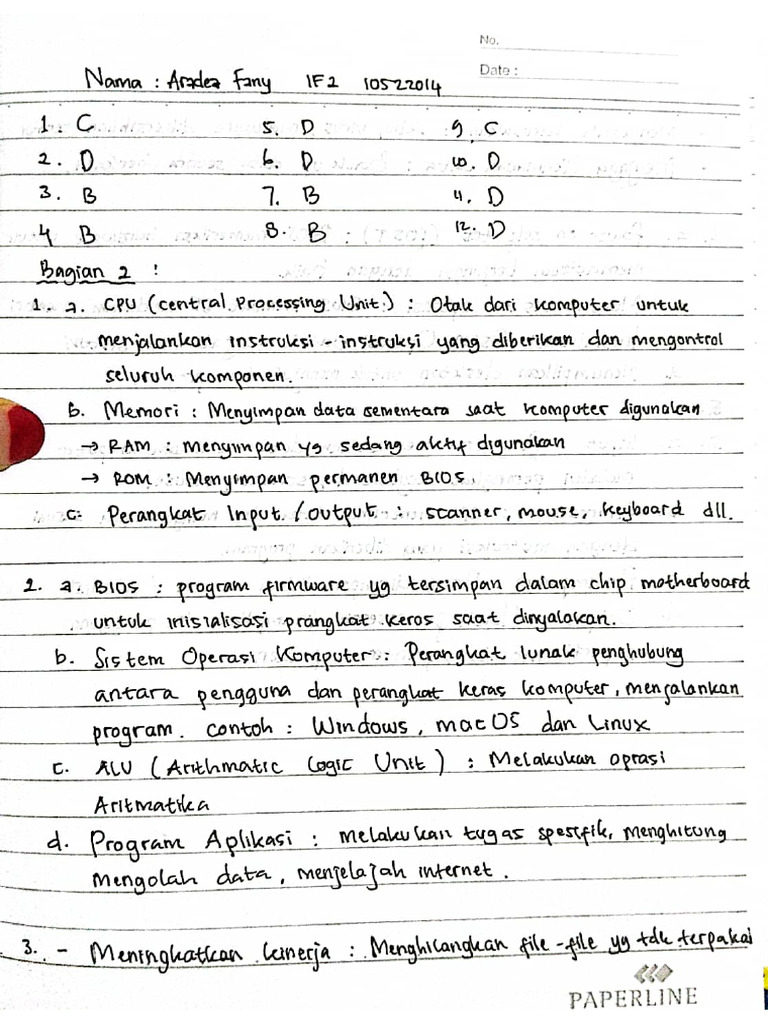 No.
Date :
Nama : Aradea Fany IF2 10522014
1. C 5. D 9. C
2. D 6. D 10. D
3. B 7. B 11. D
4 B 8. B 12. D
Bagian 2 :
1. a. CPU (central Processing Unit) : Otak dari komputer untuk
menjalankan instruksi - instruksi yang diberikan dan mengontrol
seluruh komponen.
b. Memori : Menyimpan data sementara saat komputer digunakan
→ RAM : menyimpan yg sedang aktif digunakan
→ ROM : Menyimpan permanen BIOS
c. Perangkat Input / output : scanner, mouse, keyboard dll.
2. a. BIOS : program firmware yg tersimpan dalam chip motherboard
untuk inisialisasi prangkat keros saat dinyalakan.
b. Sistem Operasi Komputer : Perangkat lunak penghubung
antara pengguna dan perangkat keras komputer, menjalankan
program. contoh : Windows, macOS dan Linux
c. ALU (Arithmatic Logic Unit) : Melakukan oprasi
Aritmatika
d. Program Aplikasi : melakukan tugas spesifik, menghitung
mengolah data, menjelajah internet.
3. - Meningkatkan kinerja : Menghilangkan file - file yg tdk terpakai
PAPERLINE